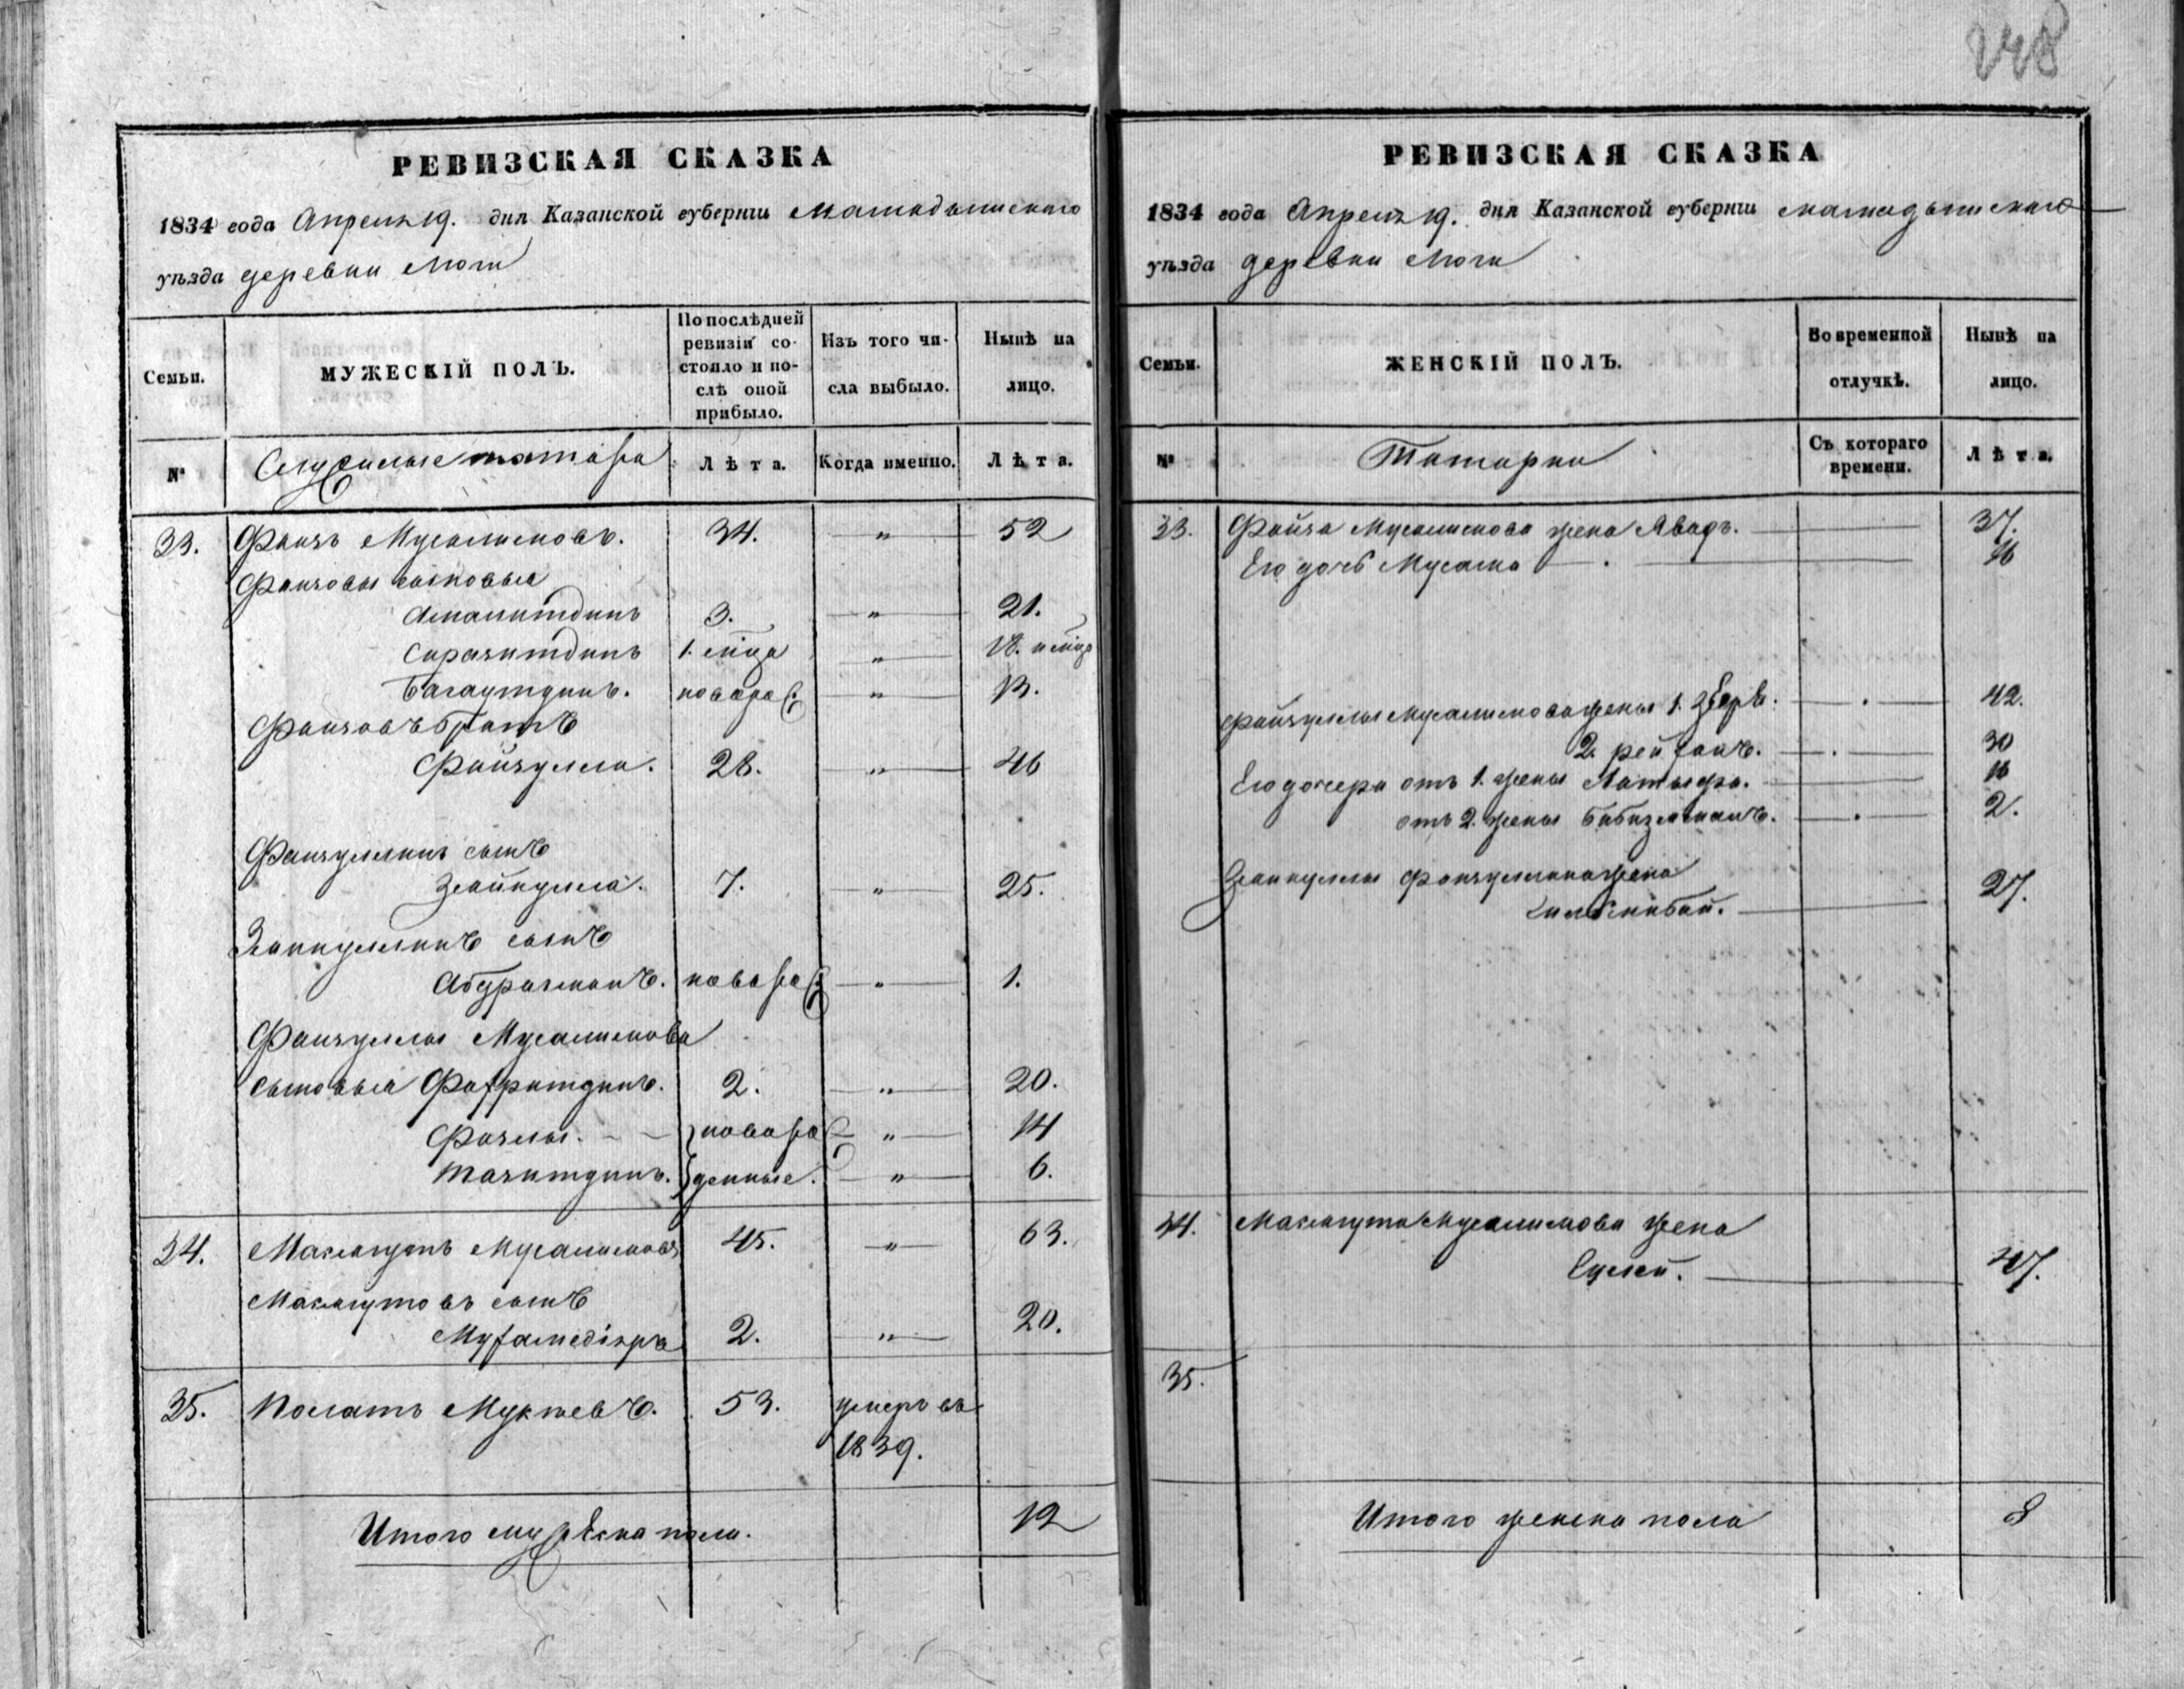 248
РЕВИЗСКАЯ СКАЗКА
1834 года Апреля 19. дня Казанской губернiи Мамадышскаго
уѣзда деревни
Семьи.
МУЖЕСКIЙ ПОЛЪ.
По послѣдней ревизiи со-
стояло и по-
слѣ оной
прибыло.
Изъ того чи-
сла выбыло.
Нынѣ на
лицо.
№
Служилые татара
Лѣта.
Когда именно.
Лѣта.
33. Фаизъ Мусалимовъ. 34. „ 52
Фаизовы сыновья
Амалитдинъ 3. „ 21.
Сиразитдинъ 1. мца „ 18. и мца
Багаутдинъ. новорож „ 13.
Фаизовъ братъ
Файзулла. 28. „ 46
Файзуллинъ сынъ
Зейнулла. 7. „ 25.
сынъ
Абдрахманъ. новорож „ 1.
Файзуллы Мусалимова
сыновья Фахритдинъ. 2. „ 20.
Фазлы. новорож „ 14
Тазитдинъ. денные. „ 6.
34. Максютъ Мусалимовъ 45. „ 63.
Максютовъ сынъ
2. „ 20.
35. Полатъ 53. умеръ въ
1839.
Итого мужеска пола. 12
РЕВИЗСКАЯ СКАЗКА
1834 года Апреля 19. дня Казанской губернiи Мамадышскаго
уѣзда деревни
Семьи.
ЖЕНСКIЙ ПОЛЪ.
Во временной
отлучкѣ.
Нынѣ на
лицо.
№
Татарки
Съ котораго
времени.
Лѣта.
33. Файза Мусалимова жена 37.
Его дочь 16
Файзуллы Мусалимова жены 1. 42.
2. 30
Его дочери отъ 1. жены Латыфа. 16
отъ 2. жены Бибизяманъ. 2.
Зейнуллы Файзуллина жена
27.
34. Максюта Мусалимова жена
47.
35.
Итого женска пола 8